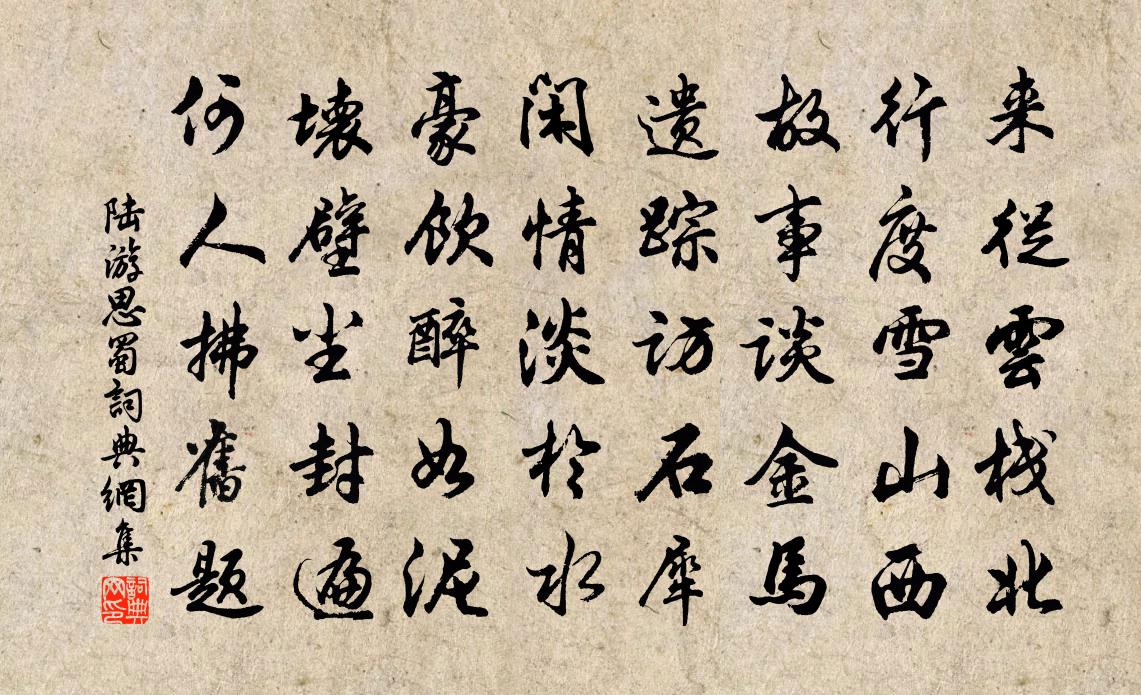 来從雲棧北
行度雪山西
故事談金馬
遗踪訪石犀
閑情淡於水
豪飲醉如泥
壊壁尘封遍
何人拂舊題
陆游思蜀詞典網集
詞典网印